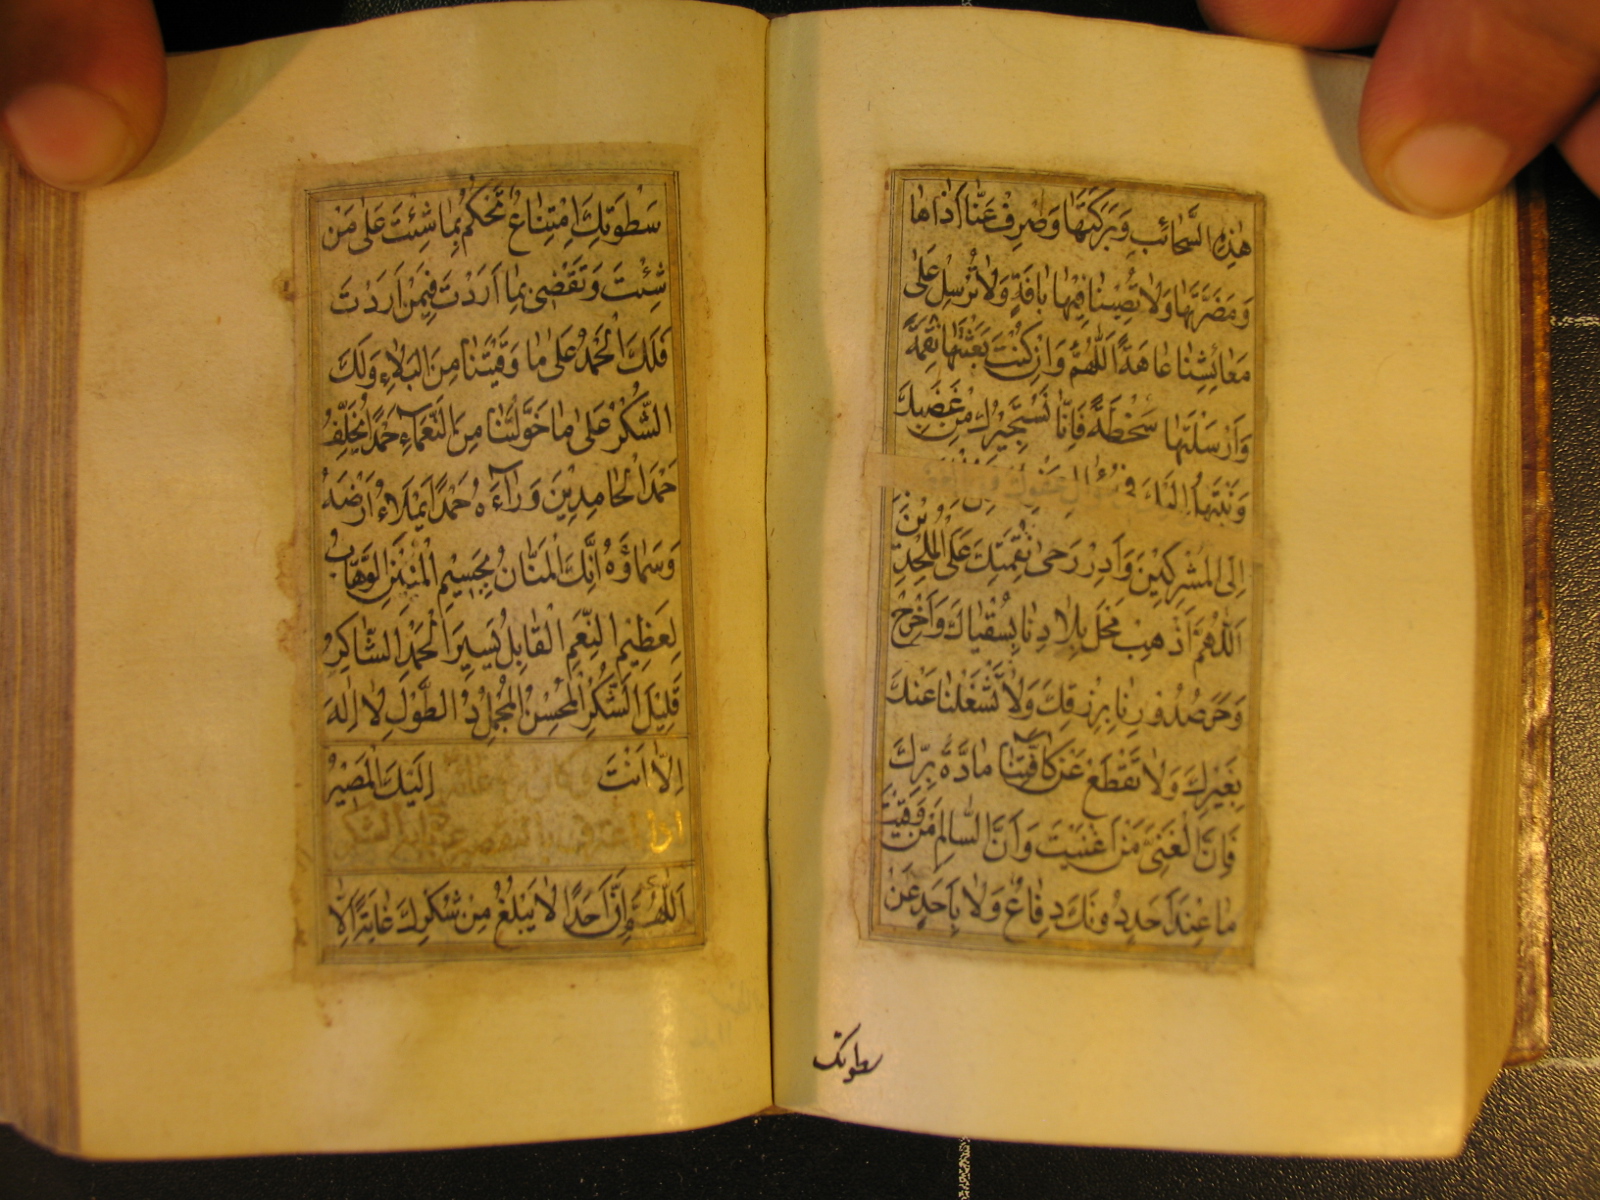 هٰذِهِ السَّحائبِ وَبَرَكَتَها وَصْرِفْ عَنّا اَذاها
وَمَضَرَّتَها وَلا تُصِبْنا فيها بِافَةٍ وَلا تُرْسِلْ عَلى
مَعائِشِنا عاهَةً اَللّٰهُمَّ وَاِنْ كُنْتَ بَعَثْتَها نِقْمَةً
وَاَرْسَلْتَها سَخْطَةً فَاِنّا نَسْتَجيرُكَ مِنْ غَضَبِكَ
اِلَيْكَ في سُؤالِ عَفْوِكَ
اِلَى الْمُشْرِكينَ وَاَدِرْ رَحى نِقْمَتِكَ عَلَى الْمُلْحِدينَ
اَللّٰهُمَّ اَذْهِبْ مَحْلَ بِلادِنا بِسُقْياكَ وَاَخْرِجْ
وَحَرَ صُدُورِنا بِرِزْقِكَ وَلا تَشْغَلْنا عَنْكَ
بِغَيْرِكَ وَلا تَقْطَعْ عَنْ كافَّتِنا مادَّةَ بِرِّكَ
فَاِنَّ الْغَنِيَّ مَنْ اَغْنَيْتَ وَاَنَّ السّالِمَ مَنْ وَقَيْتَ
ما عِنْدَ اَحَدٍ دُونَكَ دِفاعٌ وَلا بِاَحَدٍ عَنْ
سطوتك
سَطْوَتِكَ اِمْتِناعٌ تَحْكُمُ بِما شِئْتَ عَلى مَنْ
شِئْتَ وَتَقْضي بِما اَرَدْتَ فيمَنْ اَرَدْتَ
فَلَكَ الْحَمْدُ عَلى ما وَقَيْتَنا مِنَ الْبَلاءِ وَلَكَ
الشُّكْرُ عَلى ما خَوَّلْتَنا مِنَ النَّعْماءِ حَمْداً يُخَلِّفُ
حَمْدَ الْحامِدينَ وَراءَهُ حَمْداً يَمْلَاءُ اَرْضَهُ
وَسَماؤَهُ اِنَّكَ الْمَنّانُ بِجَسيمِ الْمِنَنِ الْوَهّابُ
لِعَظيمِ النِّعَمِ الْقابِلُ يَسيرَ الْحَمْدِ الشّاكِرُ
قَليلَ الشُّكْرِ الْمُحْسِنُ الْمُجْمِلُ ذُ الطَّوْلِ لا اِلهَ
اِلاّ اَنْتَ اِلَيْكَ الْمَصيرُ
اَللّٰهُمَّ اِنَّ اَحَداً لا يَبْلُغُ مِنْ شُكْرِكَ غايَةً اِلاّ